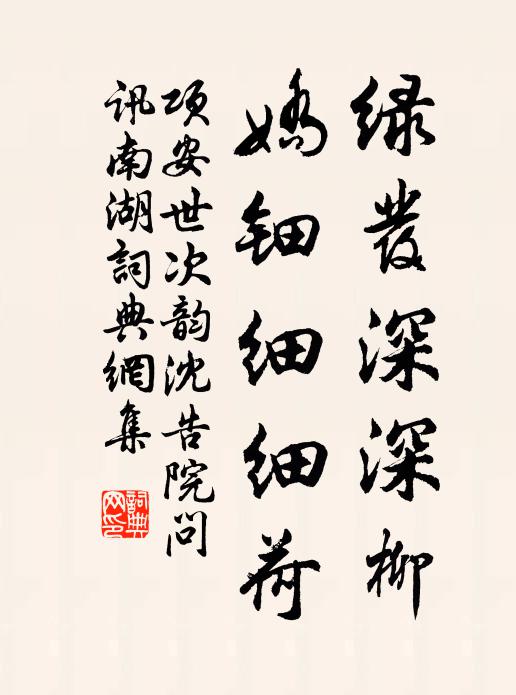 绿发深深柳
娇钿细细荷
项安世次韵沈告院问
讯南湖词典網集
詞典网印